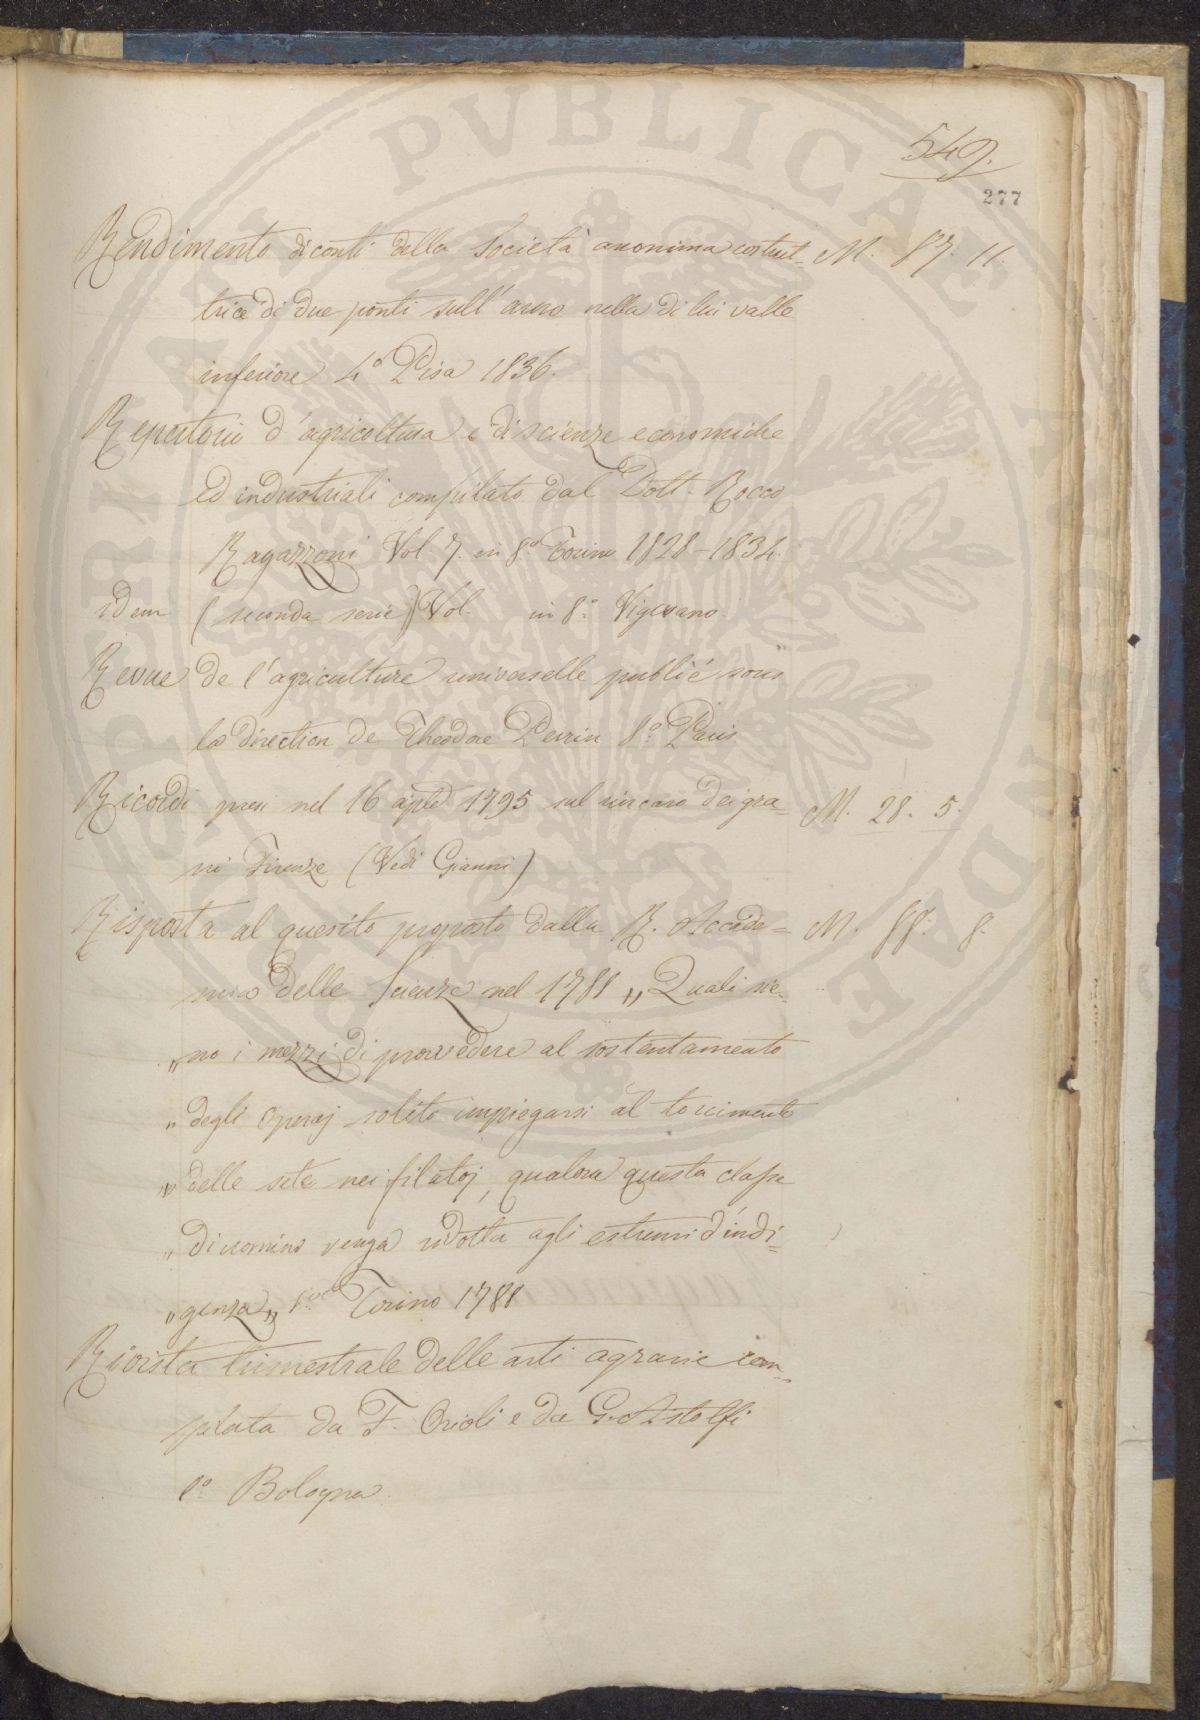 549.
277
Rendimento di conti della Società anonima costrut= M. 87. 11.
trice di due ponti sull'arno nella di lui valle
inferiore 4.º Pisa 1836.
Repertorio d'agricoltura e di scienze economiche
ed industriali compilato dal Dott. Rocco
Ragazzoni Vol. 7. in 8.º Torino 1828-1834.
idem (seconda serie) Vol. in 8.º Vigevano.
Revue de l'agriculture universelle publié sous
la direction de Theodore Perrin 8.º Paris
Ricordi presi nel 16 aple 1795 sul rincaro dei gra= M. 28. 5.
ni Firenze (Vedi Gianni)
Risposta al quesito proposto dalla R. Accade= M. 88. 8.
mia delle Scienze nel 1788 „Quali sie=
„no i mezzi di provvedere al sostentamento
„degli Operaj solito impiegarsi al torcimento
„delle sete nei filatoj, qualora questa classe
„di uomini venga ridotta agli estremi d'indi=
„genza„ 8.º Torino 1788
Rivista trimestrale delle arti agrarie com=
pilata da F. Orioli e da G. Astolfi
8.º Bologna.
PVBLICAE